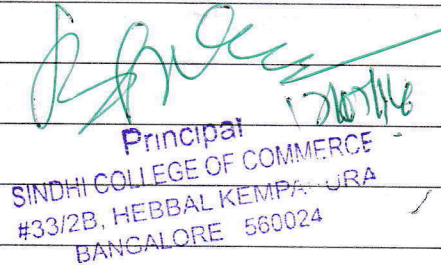 Principal
SINDHI COLLEGE OF COMMERCE
#33/2B, HEBBAL KEMPA URA
BANGALORE 560024